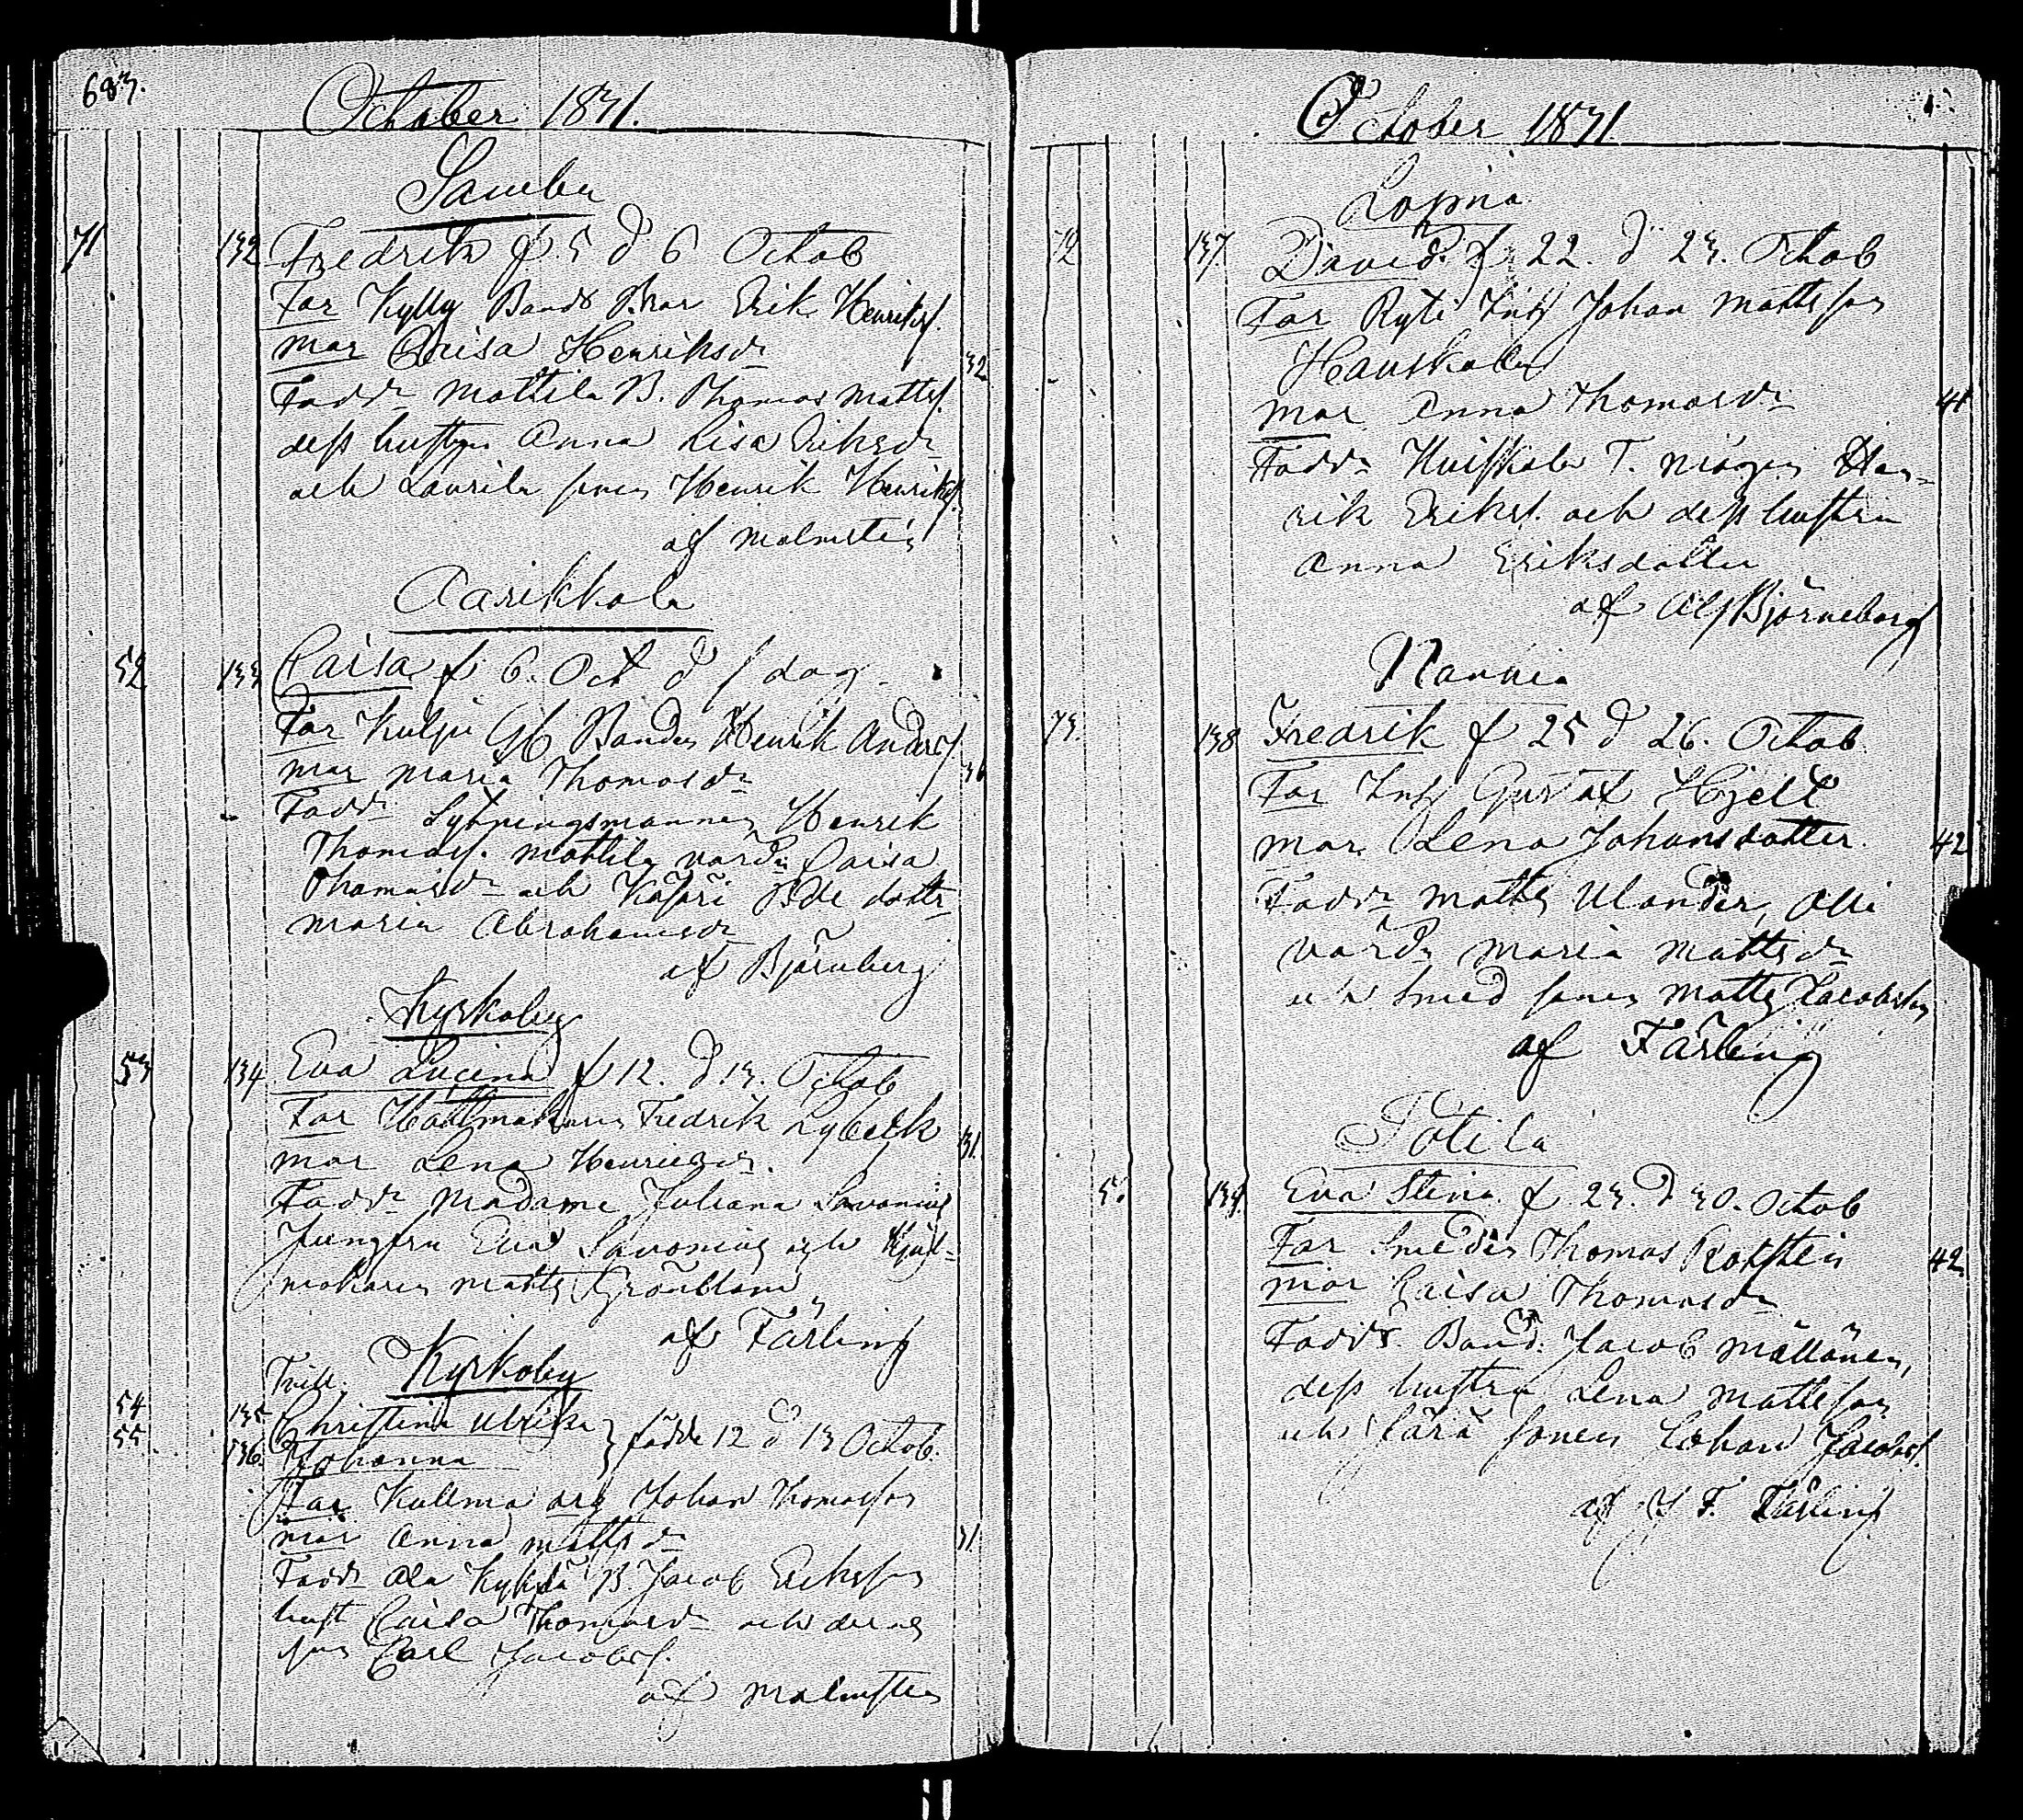 683.
October 1831.
Sambu
71 132 Fredrik f. 5 d 6 Octob
Far Kylly Bonds Brar Erik Henriksf.
mar Caisa Henriksdr
32
Faddr Mattila B. Thomas Mattsf.
dess hustru Anna Lisa Eriksdr
och Laurila sonen Henrik Henriksf.
af Malmsten
Aarikkala
52 133 Caisa f 6. Oct d s dag.
Far Kulju Bonden Henrik Andersf.
mar Maria Thomasdr
36
Faddr Sytningsmannen Henrik
Thomasf. Mattila värdn Caisa
Thomasdr och Käsäri Bde dottr
Maria Abrahamsdr
af Björnberg
Kyrkoby
53 134 Eva Lucina f 12. d. 13. Octob
Far Hattmakaren Fredrik Lybeck
mar Lena Henricsdr.
31.
Faddr Madame Juliana Savonius
Jungfru Eva Savonius och
makaren Matts Grönblom
af Färling
Tvill. Kyrkoby
54 135 Christina Ulrika
55 136. Johanna } födde 12 d 13 Octob.
Far Kullma arg Johan Thomasson
mar Anna Mattsdr
31
Faddr Ala B. Jacob Eriksson
hust Caisa Thomasdr och deras
son Carl Jacobsf.
af Malmsten
October 1831
Lopina
72 137 David. f. 22. d 23. Octob
Far Ryti Inhs Johan Mattsson
Hauskala
mar Anna Thomasdr
41
Faddr T. mågen Hen-
rik Eriksf. och dess hustru
Anna Eriksdotter
af Björneberg
Nannia
73. 138 Fredrik f 25 d 26. Octob
Far Inhs Gustaf Hjelt
mar. Lena Johansdotter.
42
Faddr Matts Ulander, Olli
värdn Maria Mattsdr
och Smed sonen Matts Jacobsson
af Färling
Potila
139. Eva Stina f 23. d 30. Octob
Far Smeden Thomas Rotsten
mar Caisa Thomasdr
42
Faddr. Bond. Jacob Mällänen,
dess hustru Lena Mattsson
och Särä sonen Johan Jacobsf.
af J F. Färling